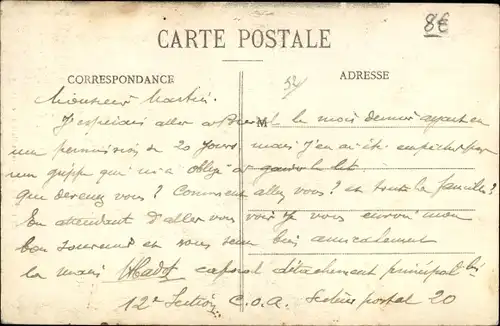 8€
CARTE POSTALE
CORRESPONDANCE
ADRESSE
52
Monsieur Martin.
J'espérais aller à le mois dernier ayant eu
M
une permission de 20 jours mais j'en ai été empêché par
une grippe qui m'a obligé à garder le lit.
Que devenez vous ? Comment allez vous ? et toute la famille ?
En attendant d'aller vous voir je vous envoie mon
bon souvenir et vous serre bien amicalement
la main caporal détachement principal
12e Section C.O.A. Secteur postal 20